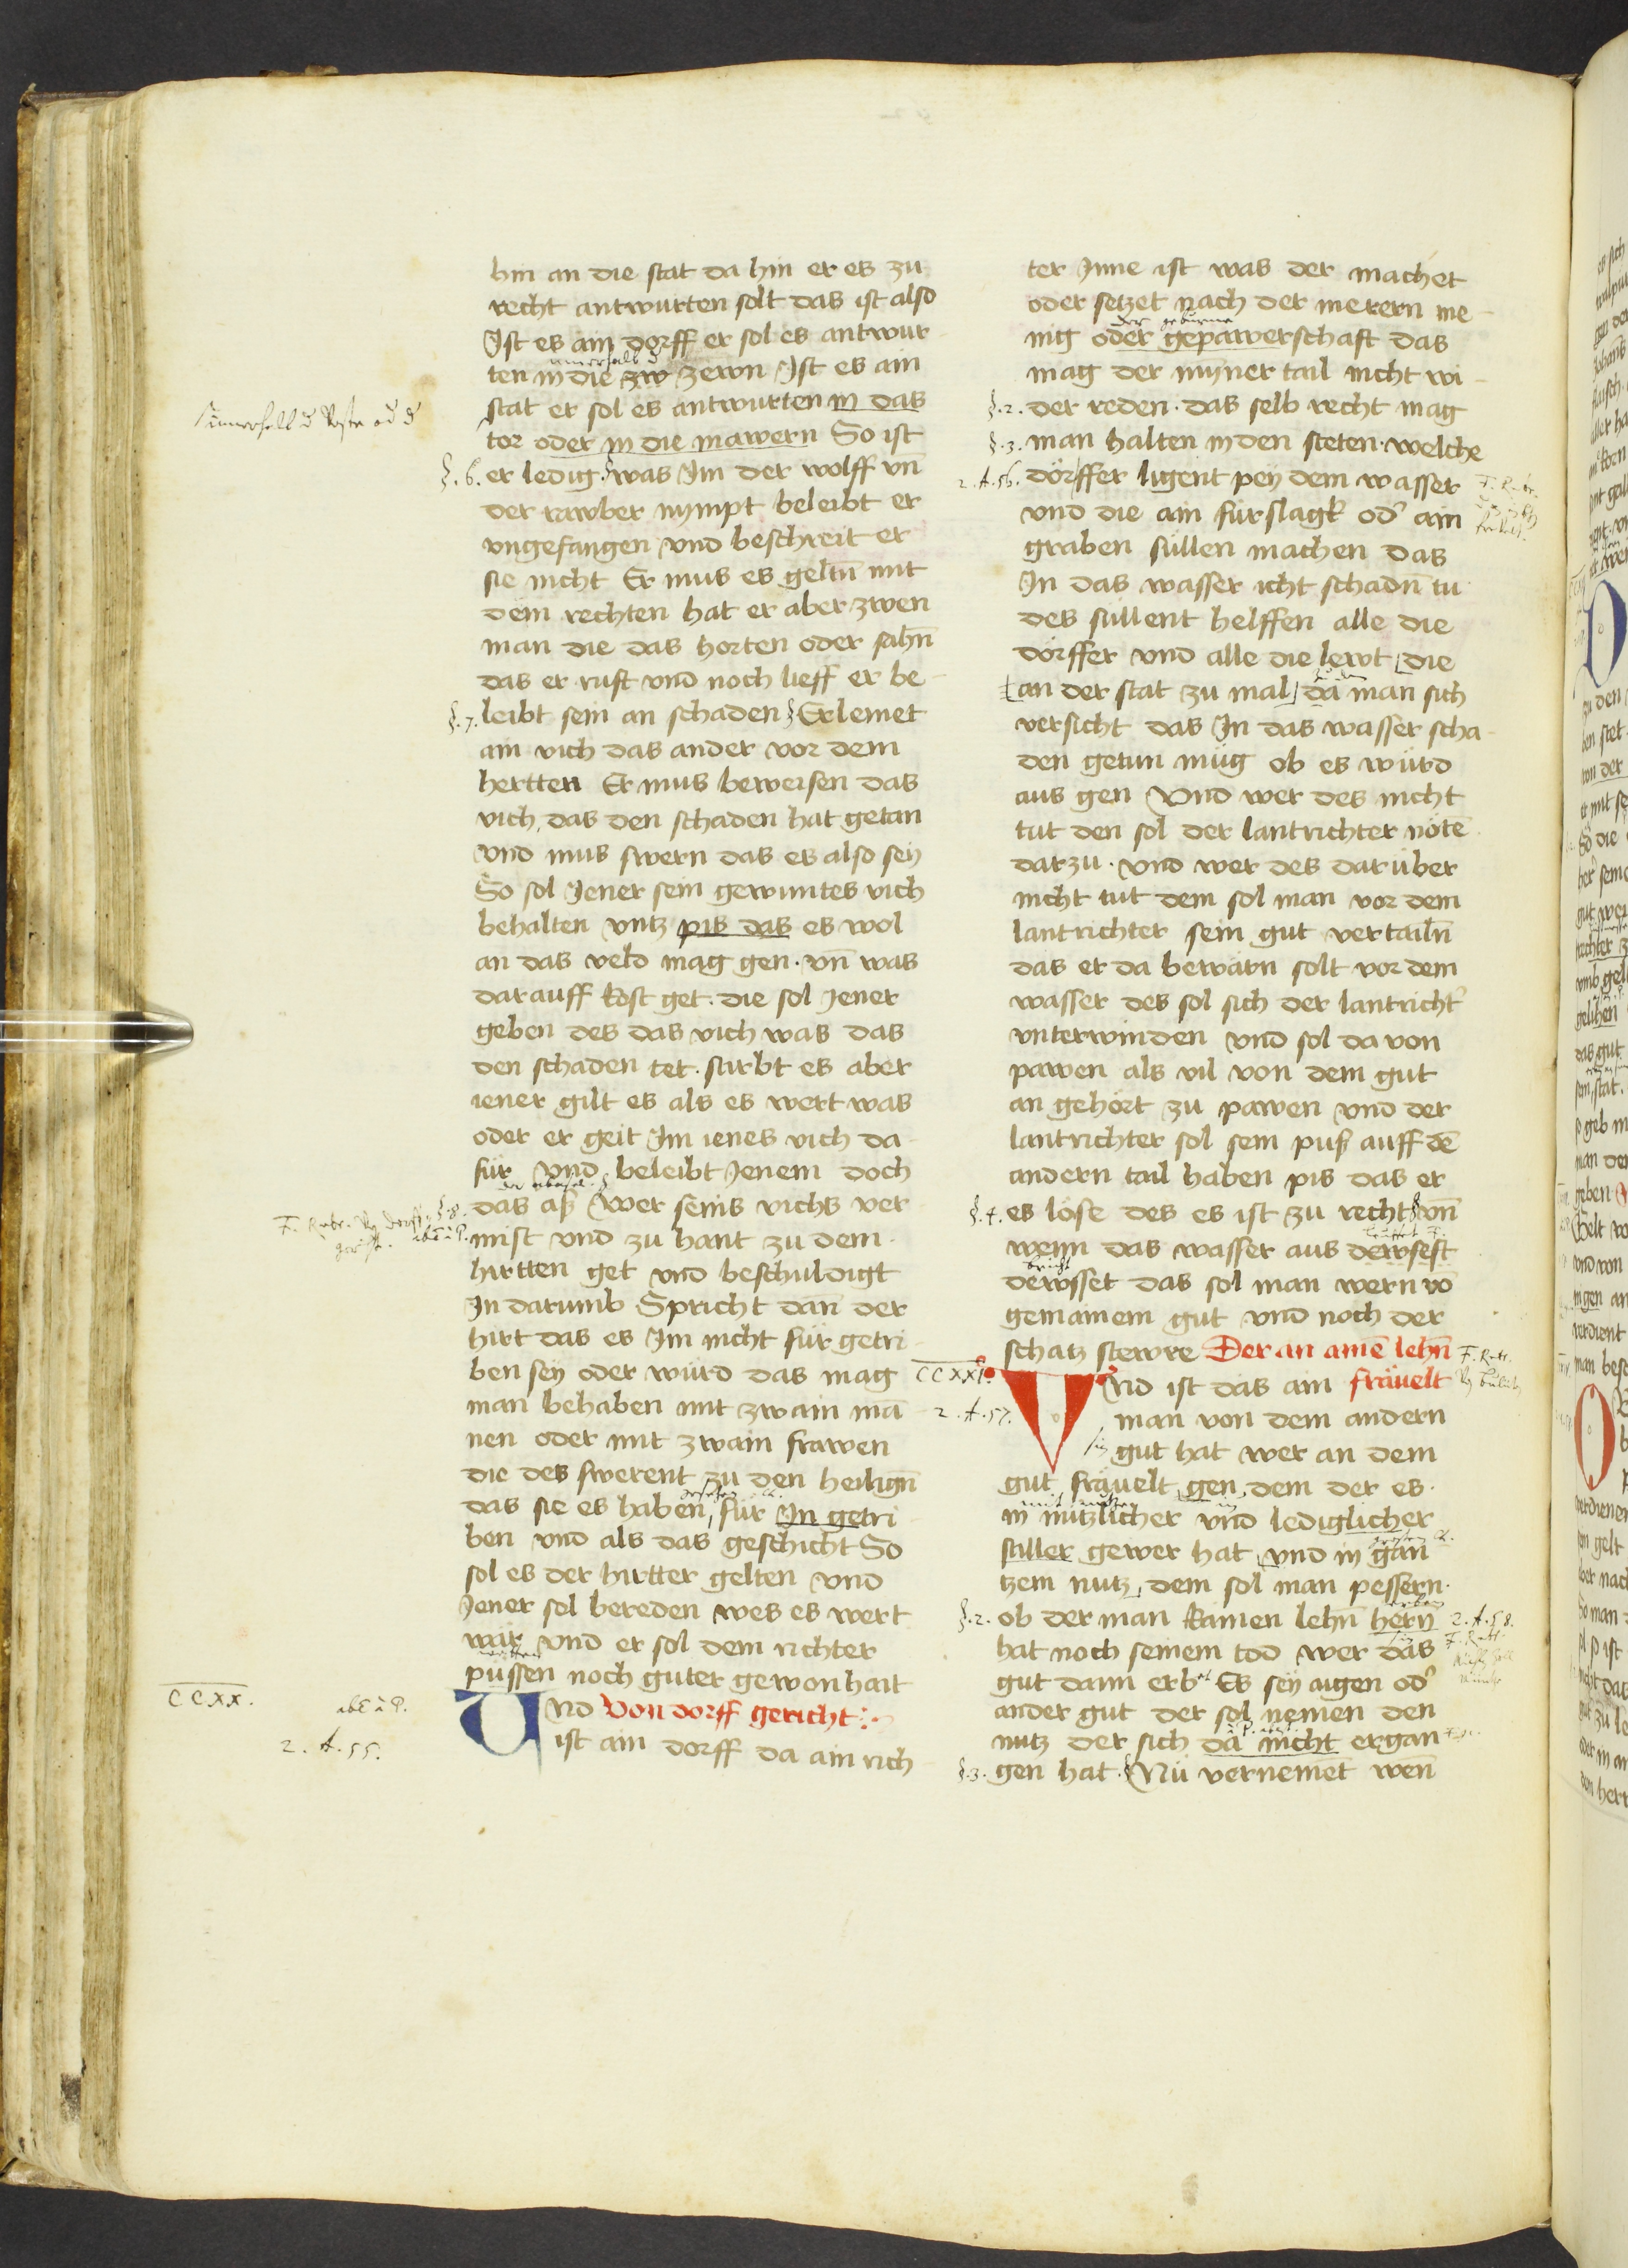 hin an die stat da hin er es zu
recht antwurten solt das ist also
Ist es ain dorff er sol es antwur
innerhalb d
ten in die zw zewn Ist es ain
stat er sol es antwurten in das
tor oder in die mawern So ist
§.6. er ledig. was Im der wolff vn̄
der rawber nympt beleibt er
vngefangen vnd beschreit er
sie nicht Er mus es geltn̄ mit
dem rechten hat er aber zwen
man die das horten oder sahn̄
das er ruft vnd noch lieff er be
§.7. leibt sein an schaden Erlemet
ain vich das ander vor dem
hertten Er mus beweisen das
vich das den schaden hat getan
vnd mus swern das es also sey
So sol Jener sein gewuntes vich
behalten vntz pis das es wol
an das veld mag gen. vn̄ was
darauff kost get. die sol Jener
geben des das vich was das
den schaden tet. stirbt es aber
iener gilt es als es wert was
oder er geit Im ienes vich da
für vnd beleibt Jenem doch
§.8. das aß Wer seins vichs ver
mist vnd zu hant zu dem
hirtten get vnd beschuldigt
In darumb Spricht dan der
hirt das es Im nicht für getri
ben sey oder würd das mag
man behaben mit zwain mā
nen oder mit zwain frawen
die des swerent zu den heilign̄
das sie es haben für In getri
ben vnd als das geschicht So
sol es der hirtter gelten vnd
Jener sol bereden wes es wert
wär vnd er sol dem richter
püssen noch guter gewonhait
CCXX.
2. A. 55.
Vnd Von dorff gericht
ist ain dorff da ain rich
ter Inne ist was der machet
oder setzet nach der merern me
nig oder gepawerschaft das
mag der mynner tail nicht wi
§.2. der reden. das selb recht mag
§.3. man halten in den steten. welche
2. A. 56. dörffer ligent pey dem wasser
vnd die ain fürslagk od' ain
graben süllen machen das
In das wasser icht schadn̄ tu
des süllent helffen alle die
dörffer vnd alle die lewt die
an der stat zu mal da man sich
versicht das In das wasser scha
den getun müg ob es würd
aus gen Vnd wer des nicht
tut den sol der lantrichter nöte
darzu. vnd wer des darüber
nicht tut dem sol man vor dem
lantrichter sein gut vertailn̄
das er da bewarn solt vor dem
wasser des sol sich der lantricht'
vnterwinden vnd sol da von
pawen als vil von dem gut
an gehört zu pawen vnd der
lantrichter sol sein puß auff dē
andern tail haben pis das er
§.4. es löse des es ist zu recht vn̄
wenn das wasser aus dewsest
bricht
dewsset das sol man wern vō
gemainem gut vnd noch der
schatz stewre Der an aimē lehn̄
CCXXI. Vnd ist das ain fräuelt
2. A. 57. man von dem andern
gut hat wer an dem
gut fräuelt gen dem der es
in nützlicher vnd lediglicher
stiller gewer hat vnd in gan
tzem nutz dem sol man pessern.
§.2. ob der man kainen lehn̄ hern 2. A. 58.
hat noch seinem tod wer das
gut dann erbet Es sey aigen od'
ander gut der sol nemen den
nutz der sich da nicht ergan
§.3. gen hat. Nü vernemet wen̄